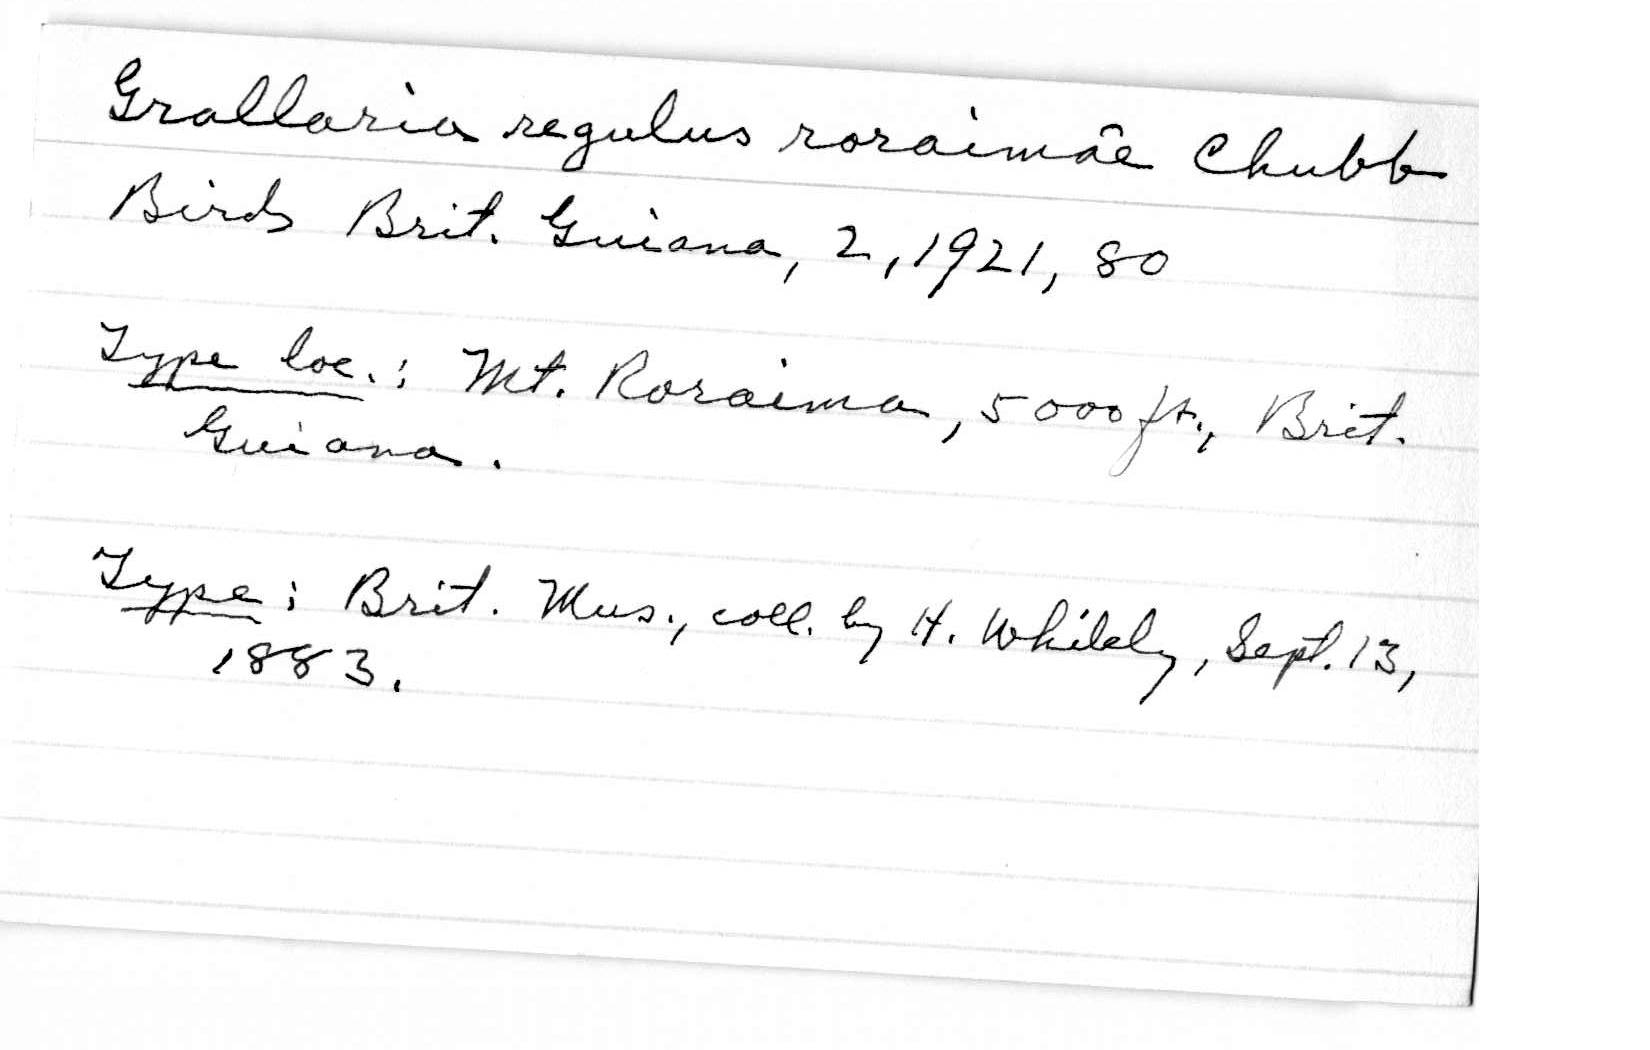 Grallaria regulus roraimâe Chubb
Birds Brit. Guiana, 2, 1921, 80
Type loc.: Mt. Roraima, 5000 ft., Brit.
Guiana.
Type: Brit. Mus., coll. by H. Whitely, Sept. 13,
1883.